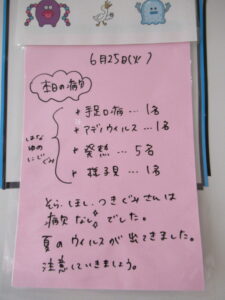 6月25日(火)
本日の病欠
はな
ゆめ
にじぐみ
＊手足口病…1名
＊アデノウイルス…1名
＊発熱…5名
＊様子見…1名
そら、ほし、つきぐみさんは
病欠なしでした。
夏のウイルスが出てきました。
注意していきましょう。